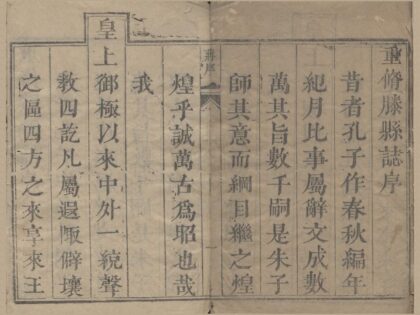 重脩滕縣誌序
昔者孔子作春秋編年
紀月比事屬辭文成數
萬其旨數千嗣是朱子
師其意而綱目繼之煌
煌乎誠萬古爲昭也哉
我
皇上御極以來中外一統聲
教四訖凡屬遐陬僻壤
之區四方之來享來王